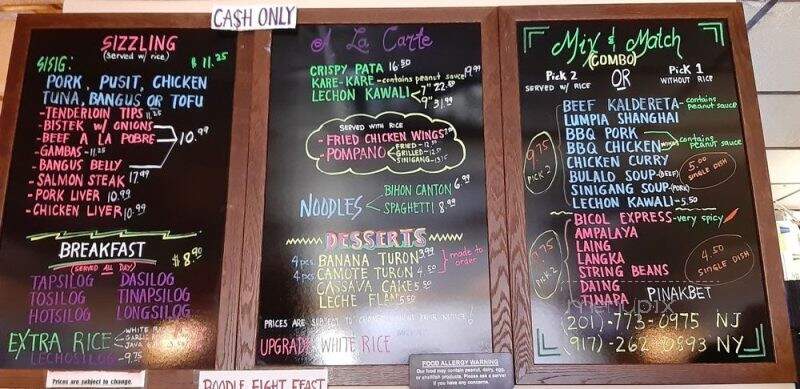 CA$H ONLY
SIZZLING
(SERVED W/ RICE)
SISIG: $11.25
PORK, PUSIT, CHICKEN
TUNA, BANGUS OR TOFU
-TENDERLOIN TIPS 11.25
-BISTEK W/ ONIONS
-BEEF A LA POBRE 10.99
-GAMBAS-11.25
-BANGUS BELLY
-SALMON STEAK 17.99
-PORK LIVER 10.99
-CHICKEN LIVER 10.99
BREAKFAST $8.90
(SERVED ALL DAY)
TAPSILOG DASILOG
TOSILOG TINAPSILOG
HOTSILOG LONGSILOG
EXTRA RICE
WHITE RICE
GARLIC
JAVA
LECHOSILOG -9.75
Prices are subject to change.
A La Carte
CRISPY PATA 16.50
KARE-KARE-contains peanut sauce 19.99
LECHON KAWALI 7" 22.50
9" 31.99
SERVED WITH RICE
-FRIED CHICKEN WINGS
-POMPANO
FRIED-12.50
GRILLED-12.50
SINIGANG-13.75
NOODLES
BIHON CANTON 6.99
SPAGHETTI 8.99
DESSERTS
4 pcs BANANA TURON 3.99 made to
4 pcs CAMOTE TURON 4.50 order
CASSAVA CAKE 5.50
LECHE FLAN 5.50
PRICES ARE SUBJECT TO CHANGE
UPGRADE WHITE RICE
FOOD ALLERGY WARNING
Our food may contain peanut, dairy, egg,
or shellfish products. Please ask a server
if you have any concerns.
BOODLE FIGHT FEAST
Mix & Match
(COMBO)
Pick 2 OR Pick 1
SERVED W/ RICE WITHOUT RICE
BEEF KALDERETA-contains peanut sauce
LUMPIA SHANGHAI
BBQ PORK
BBQ CHICKEN WINGS contains peanut sauce
CHICKEN CURRY
BULALO SOUP (BEEF)
SINIGANG SOUP (PORK)
LECHON KAWALI-5.50
9.75 PICK 2
5.00 SINGLE DISH
BICOL EXPRESS-very spicy
AMPALAYA
LAING
LANGKA
STRING BEANS
DAING
TINAPA PINAKBET
PICK 2
4.50 SINGLE DISH
menupix
(201)-773-0975 NJ
(917)-262-0893 NY